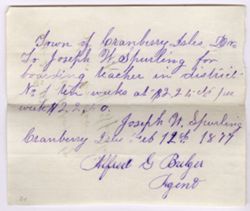 Town of Cranberry Isles, Dr.
To Joseph W. Spurling for
boarding teacher in district
No 1 ten weeks at $2.25 per
week $22.50.
Joseph W. Spurling
Cranberry Isles Feb 12th 1877
Alfred G Bulger
Agent